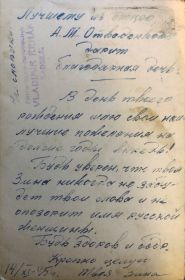 Лучшему из отцов
А. М. 
дарит
благодарная дочь.
В день твоего
рождения шлю свои наи-
лучшие пожелания на
долгие годы жизни!
Будь уверен, что твоя
Зина никогда не забу-
дет твои слова и не
опозорит имя русской
женщины.
Будь здоров и бодр.
Крепко целую
Твоя Зина